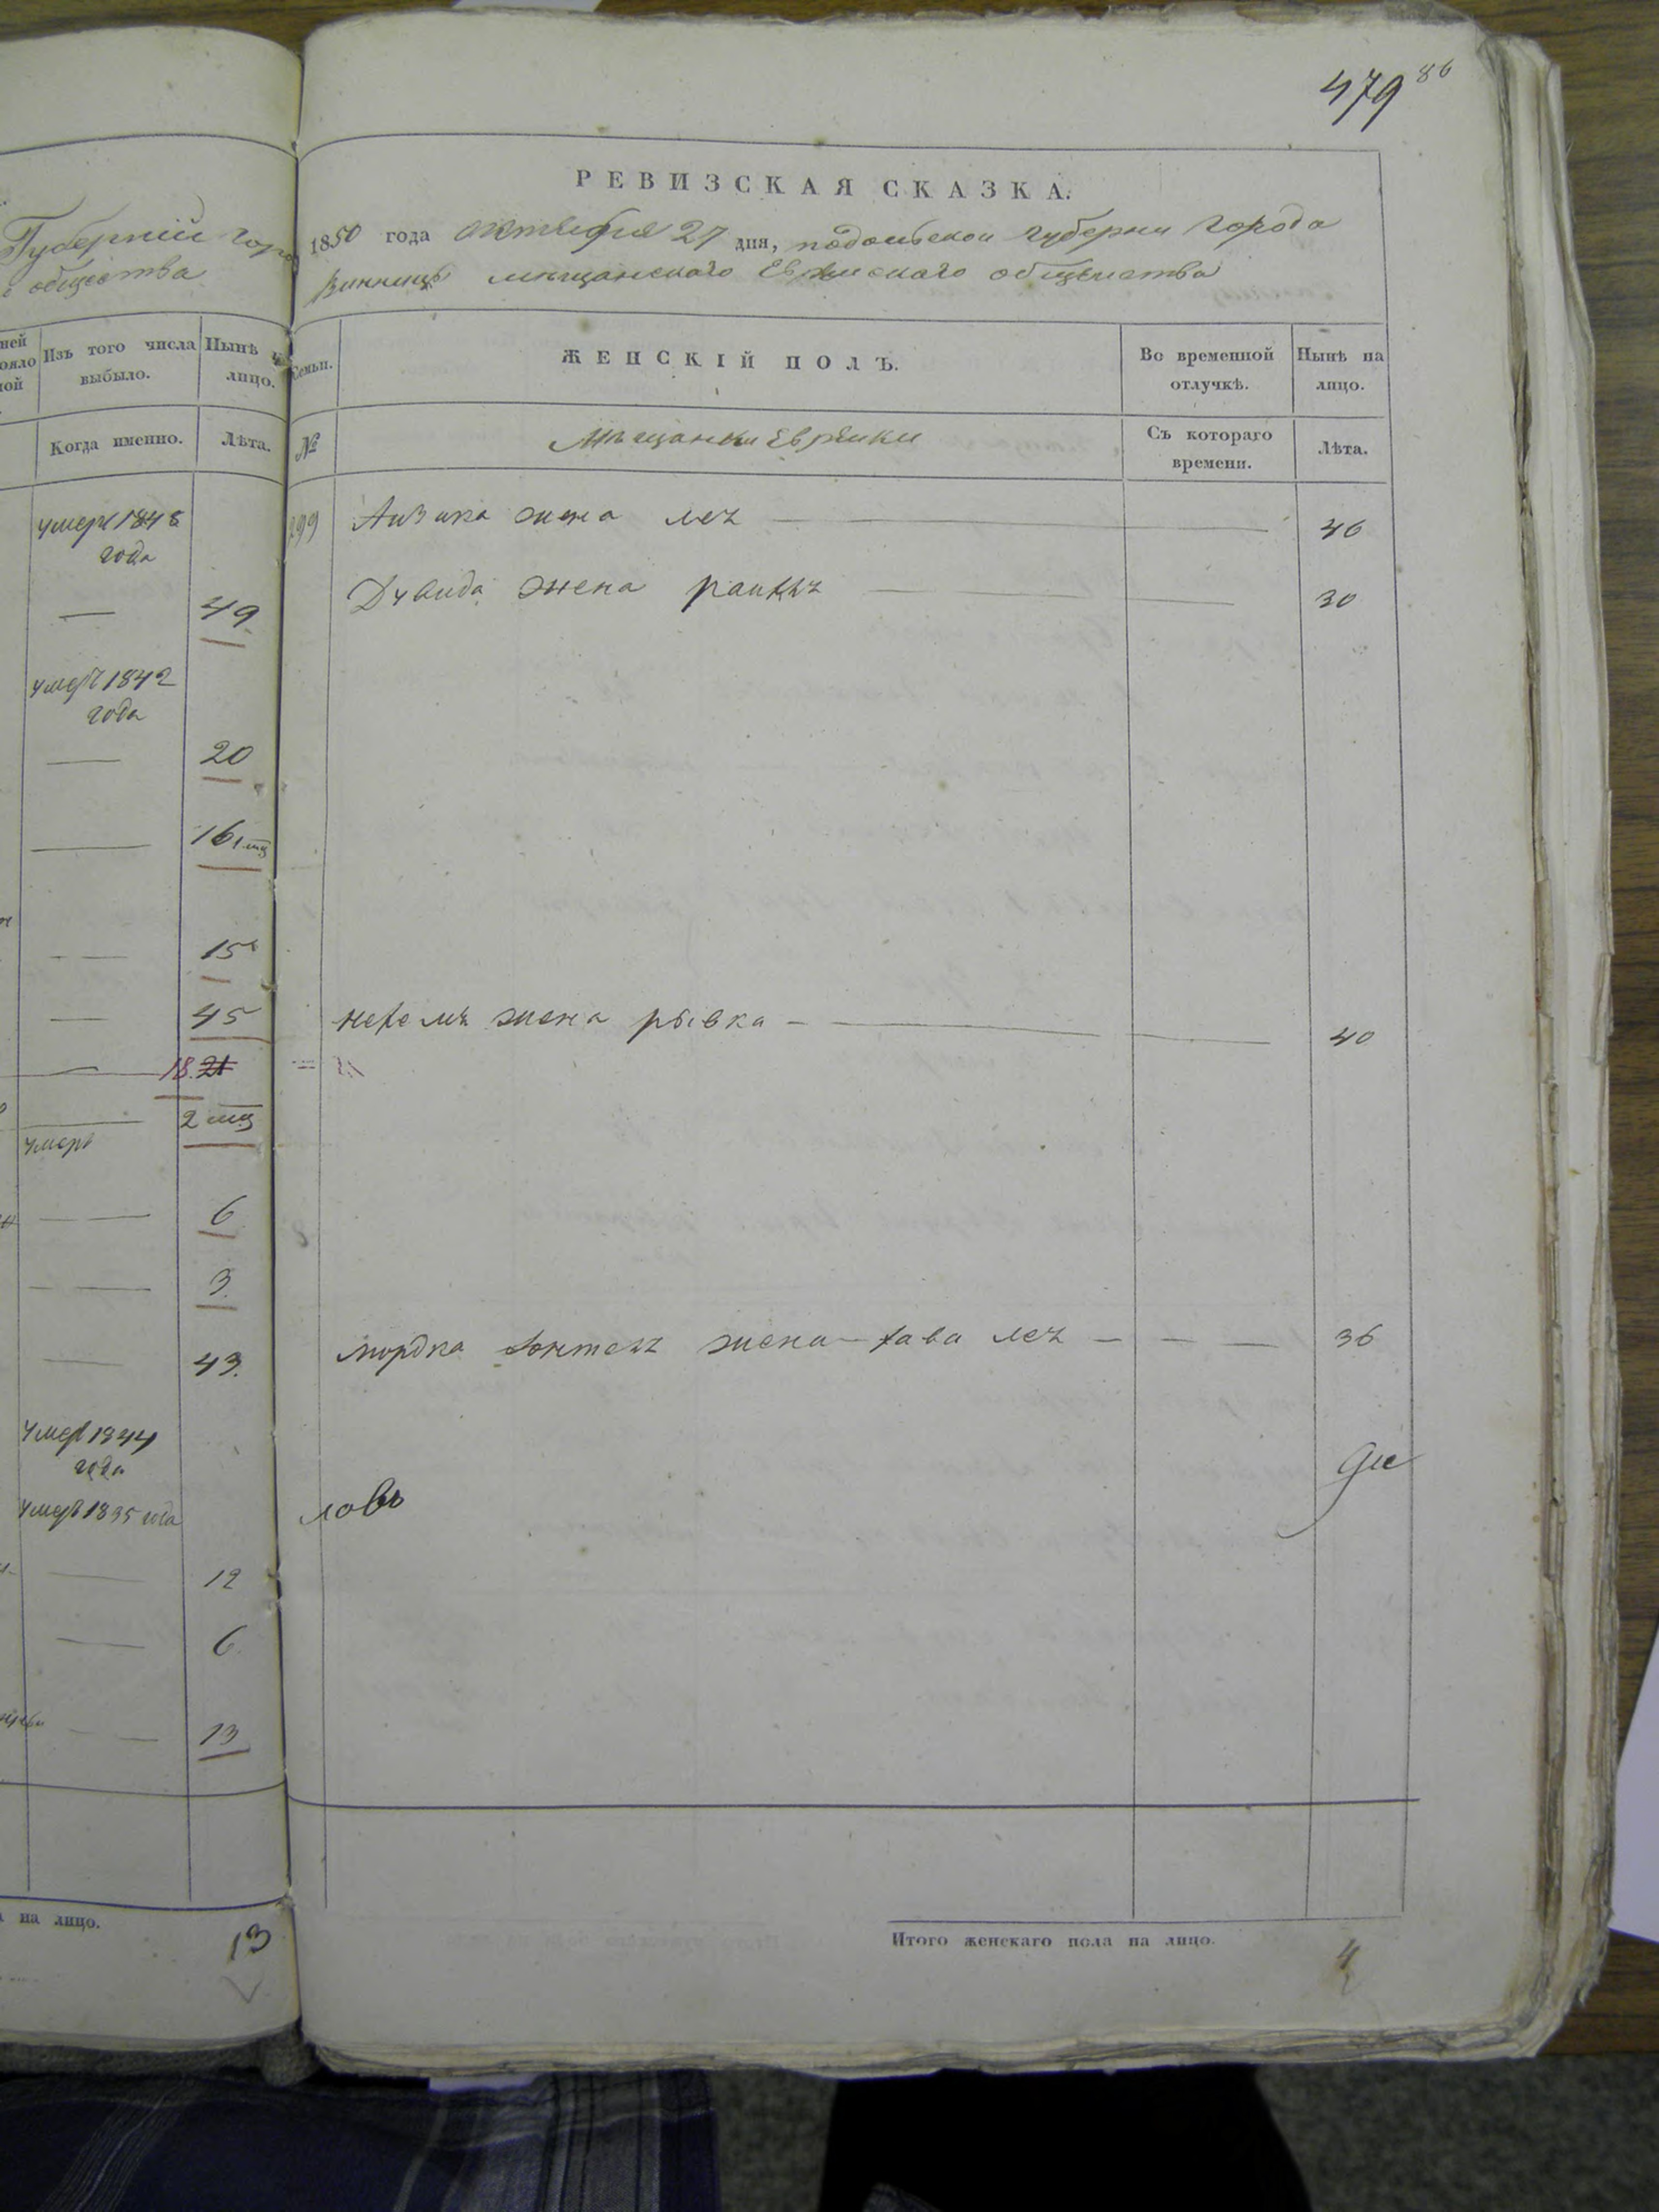 479 86
Губерніи горо
общества
Изъ того числа выбыло.
Нынѣ на лицо.
Когда именно.
Лѣта.
умеръ 1848
года
— 49
умеръ 1842
года
— 20
— 16
— 15
— 45
— 18. 21
— 2 мц
умеръ
— 6
— 3
— 43.
умеръ 1844
года
умеръ 1835 года
— 12
— 6
— 13
на лицо. 13
РЕВИЗСКАЯ СКАЗКА.
1850 года октября 27 дня, подольской губерни города
винницы мещанскаго Еврейскаго общества
Семьи.
ЖЕНСКІЙ ПОЛЪ.
Во временной отлучкѣ.
Нынѣ на лицо.
№
Мещанки Еврейки
Съ котораго времени.
Лѣта.
299 Аизика жена лея — — 46
Дувида жена — — 30
жена рывка — — 40
мордка жена — хава лея — — — 36
ловъ
Итого женскаго пола на лицо. 4